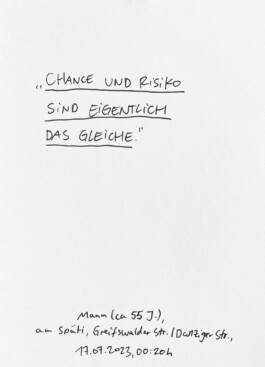 „CHANCE UND RISIKO
SIND EIGENTLICH
DAS GLEICHE."
Mann (ca 55 J.),
am Späti, Greifswalder Str./Danziger Str.,
17.07.2023, 00:20h